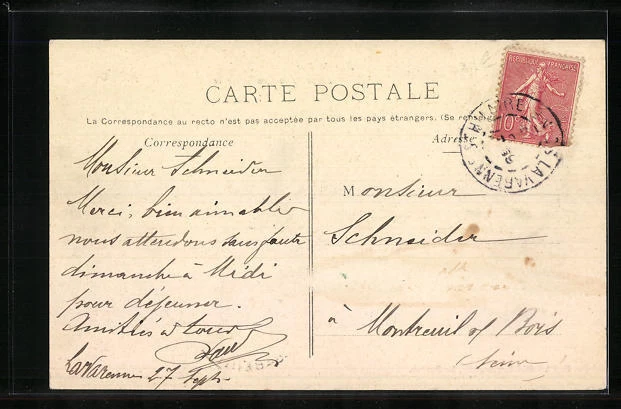 CARTE POSTALE
La Correspondance au recto n'est pas acceptée par tous les pays étrangers. (Se renseig
Correspondance
Adresse
REPUBLIQUE FRANÇAISE
10
LA VARENNE
Monsieur Schneider
Merci, bien aimable
nous attendons sans faute
dimanche à Midi
pour déjeuner.
Amitiés à tous
LaVarenne 27 Sept
Monsieur
Schneider
à Montreuil s/ Bois
(Seine)